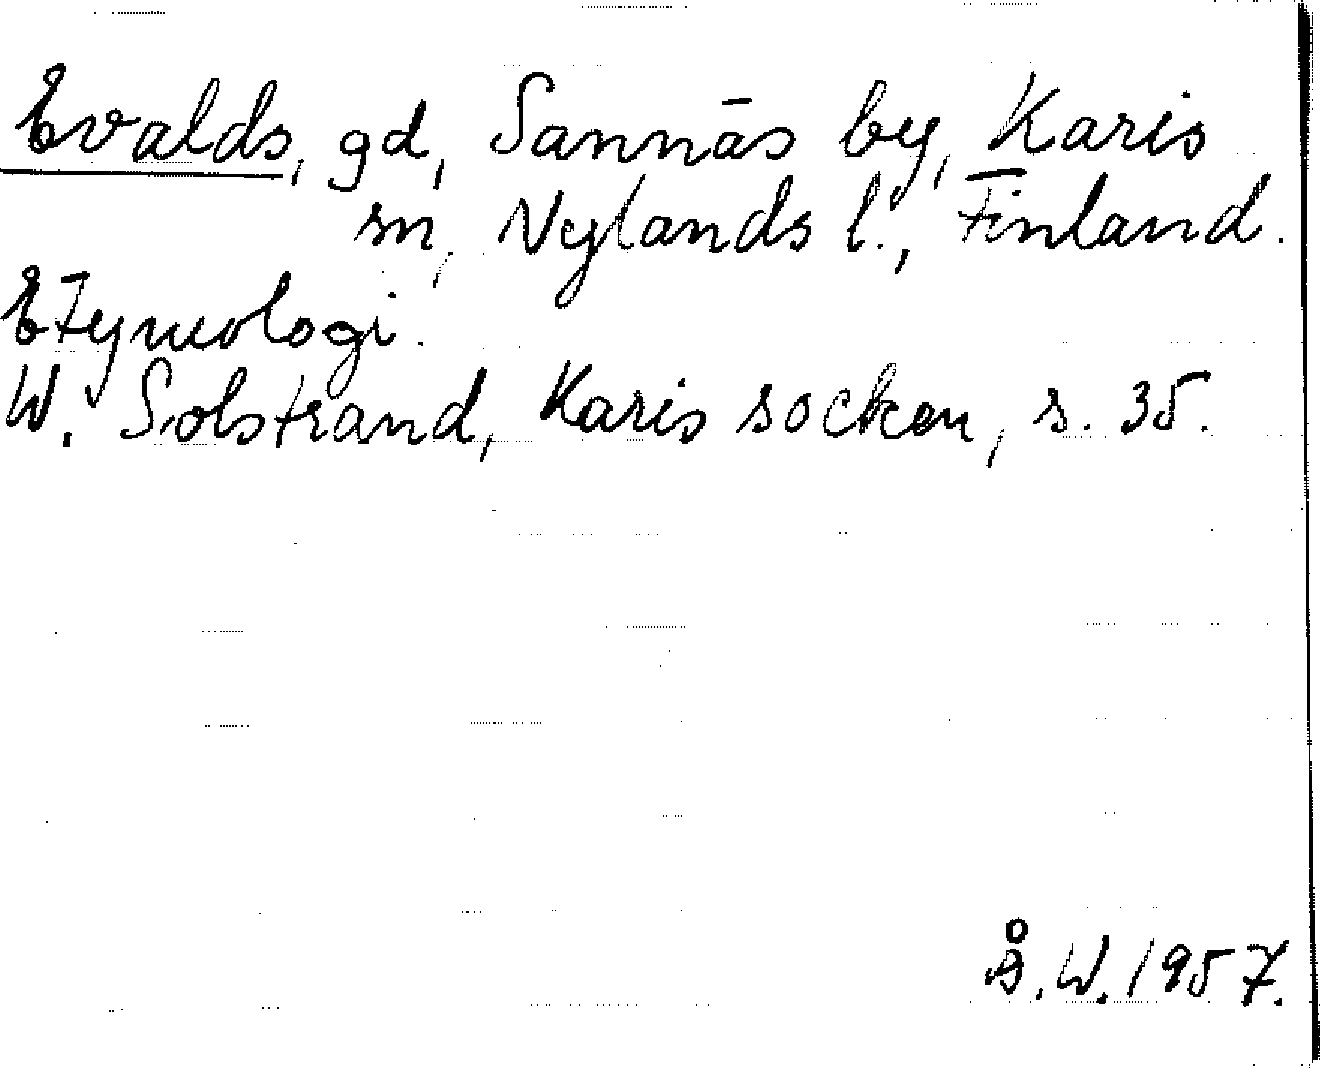 Evalds, gd, Sannäs by, Karis
sn, Nylands l., Finland.
Etymologi.
W. Solstrand, Karis socken, s. 35.
Å.W. 1957.